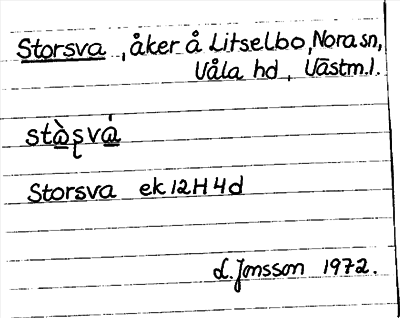 Storsva, åker å Litselbo, Nora sn,
Våla hd, Västm.l.
stàʂvá
Storsva ek 12H4d
L. Jonsson 1972.